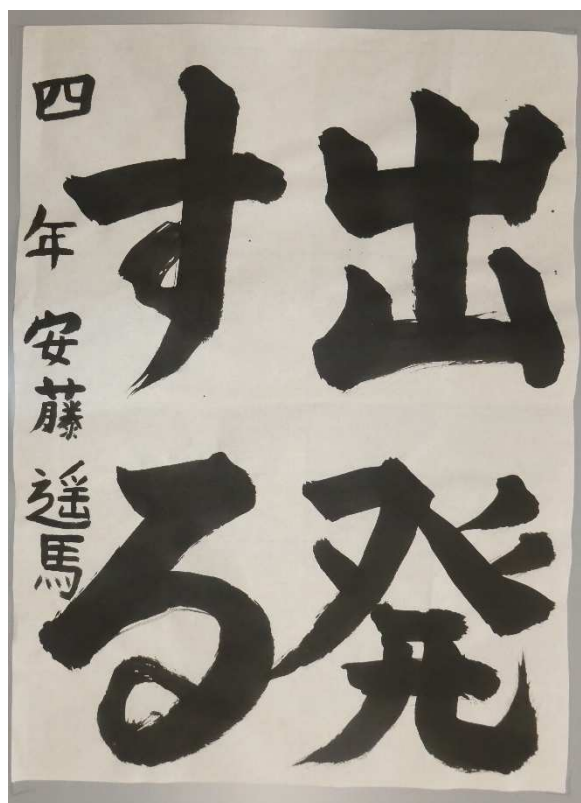 出発
する
四年 安藤遥馬